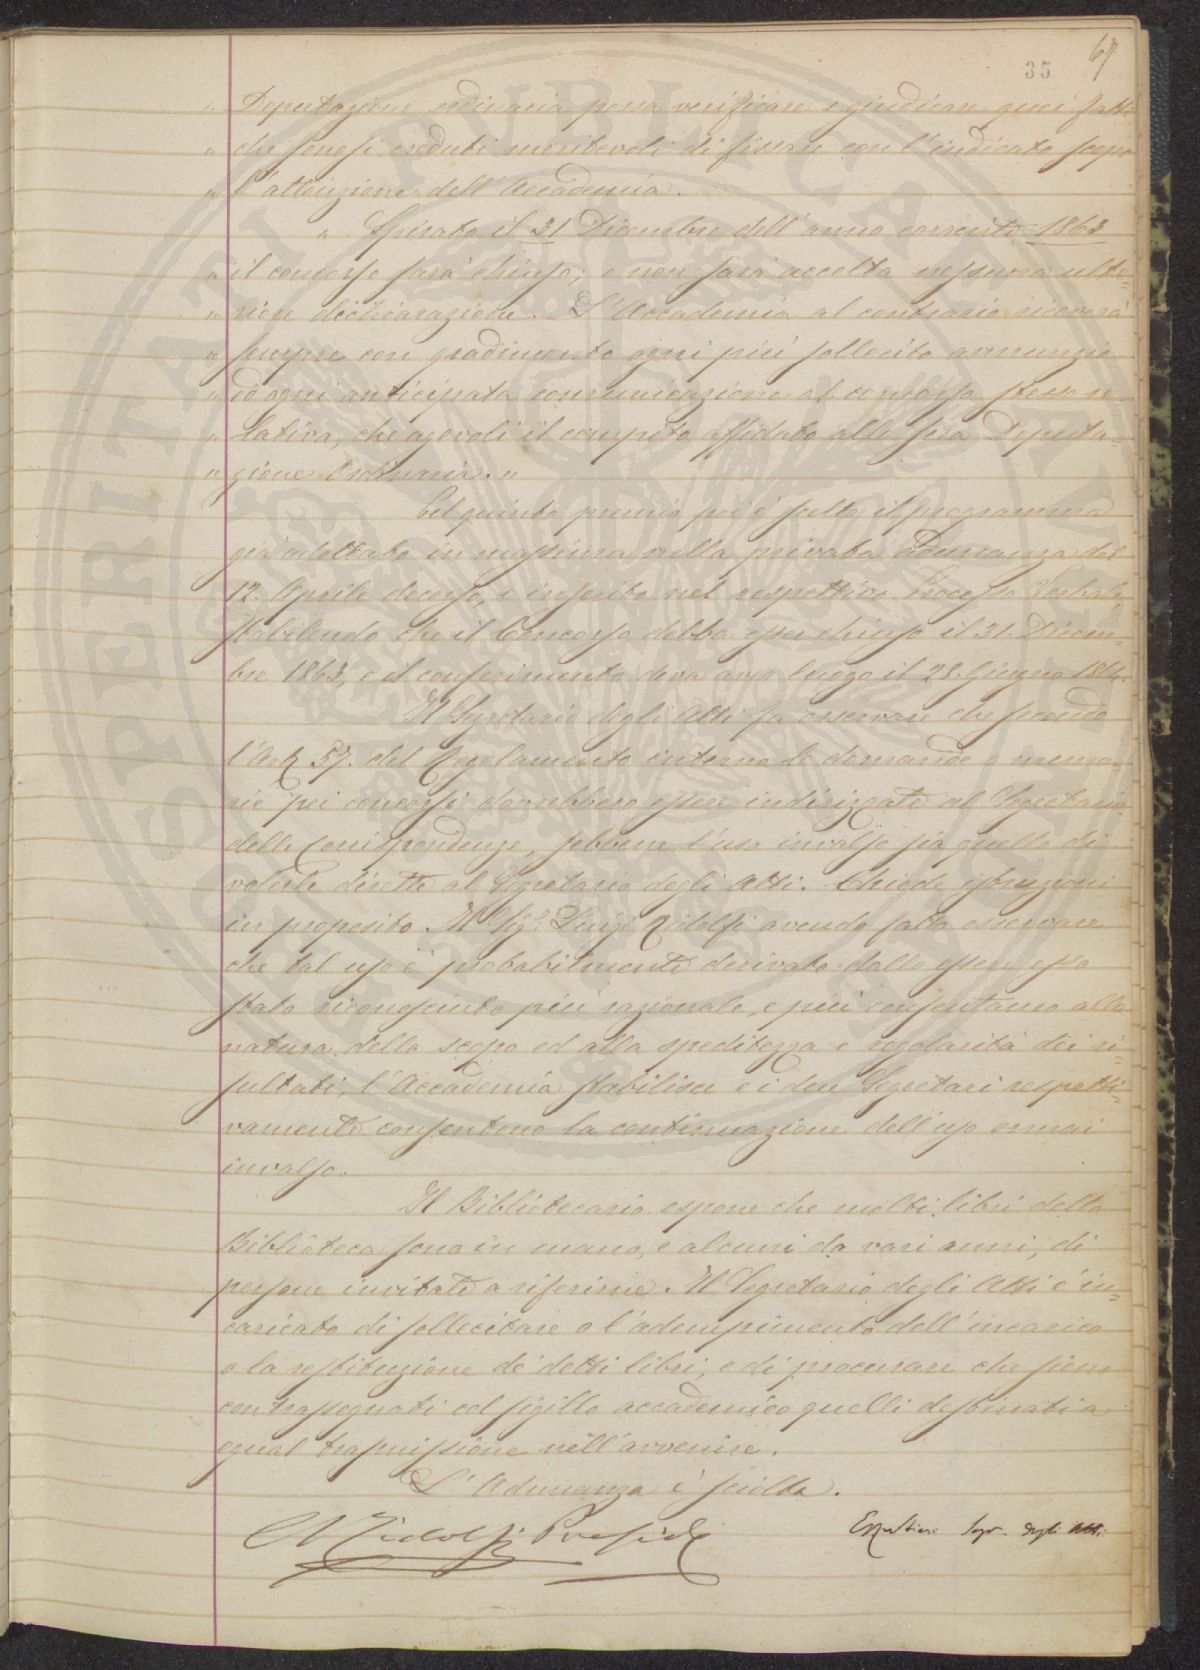 67
35
" Deputazione ordinaria possa verificare e giudicare quei fatti
" che fonosi creduti meritevoli di fissare con l'indicato scopo
" l'attenzione dell'Accademia.
" Spirato il 31 Dicembre dell'anno corrente 1863
" il concorso sarà chiuso; e non sarà accolta nessuna ulte=
" riore dichiarazione. L'Accademia al contrario riceverà
" sempre con gradimento ogni più sollecito annunzio
" ed ogni anticipata comunicazione al concorso stesso re
" lativa, che agevoli il compito affidato alla sua Deputa=
" zione Ordinaria. "
Pel quinto premio poi è scelto il programma
già adottato in massima nella privata adunanza del
12. Aprile decorso, e inserito nel respettivo Processo Verbale,
stabilendo che il Concorso debba esser chiuso il 31. Dicem=
bre 1863, e il conferimento deva aver luogo il 28. Giugno 1864.
Il Segretario degli Atti fa osservare che secondo
l'Art 57. del Regolamento interno le domande o memo
rie pei concorsi dovrebbero essere indirizzate al Segretario
delle Corrispondenze, sebbene l'uso invalso sia quello di
volerle dirette al Segretario degli Atti. Chiede istruzioni
in proposito. Il Sig.r Luigi Ridolfi avendo fatto osservare
che tal uso è probabilmente derivato dallo essere esso
stato riconosciuto più razionale, e più consentaneo alla
natura dello scopo ed alla speditezza e regolarità dei ri=
sultati, l'Accademia stabilisce e i due Segretari respetti=
vamente consentono la continuazione dell'uso ormai
invalso.
Il Bibliotecario espone che molti libri della
Biblioteca sono in mano, e alcuni da vari anni, di
persone invitate a riferirne. Il Segretario degli Atti è in=
caricato di sollecitare o l'adempimento dell'incarico
o la restituzione de' detti libri, e di procurare che sieno
contrassegnati col sigillo accademico quelli destinati a
egual trasmissione nell'avvenire.
L'Adunanza è sciolta.
C Ridolfi Presid.
Segr. degli Atti
SPERITATI PUBLICAE